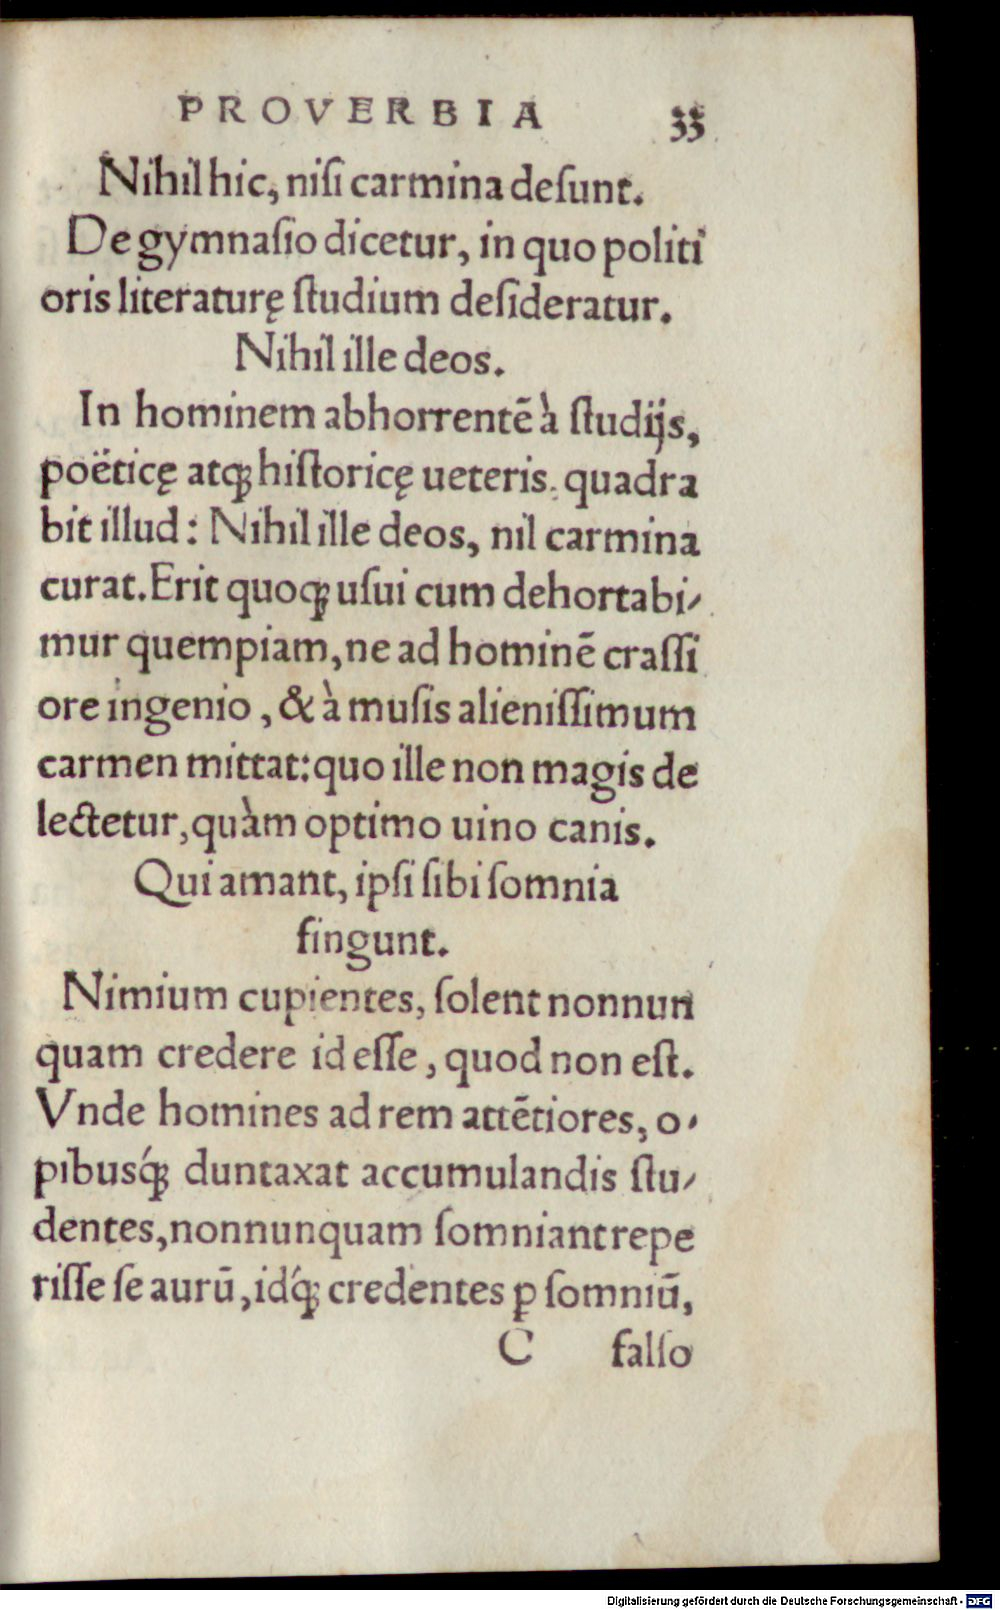 PROVERBIA 33
Nihil hic, niſi carmina deſunt.
De gymnaſio dicetur, in quo politi
oris literaturę ſtudium deſideratur.
Nihil ille deos.
In hominem abhorrentẽ à ſtudijs,
poëticę atq; hiſtoricę ueteris. quadra
bit illud: Nihil ille deos, nil carmina
curat. Erit quoq; uſui cum dehortabi-
mur quempiam, ne ad hominẽ craſſi
ore ingenio, & à muſis alieniſſimum
carmen mittat: quo ille non magis de
lectetur, quàm optimo uino canis.
Qui amant, ipſi ſibi ſomnia
fingunt.
Nimium cupientes, ſolent nonnun
quam credere id eſſe, quod non eſt.
Vnde homines ad rem attẽtiores, o-
pibusq́; duntaxat accumulandis ſtu-
dentes, nonnunquam ſomniant repe
riſſe ſe aurũ, idq́; credentes ꝑ ſomniũ,
C falſo
Digitalisierung gefördert durch die Deutsche Forschungsgemeinschaft - DFG